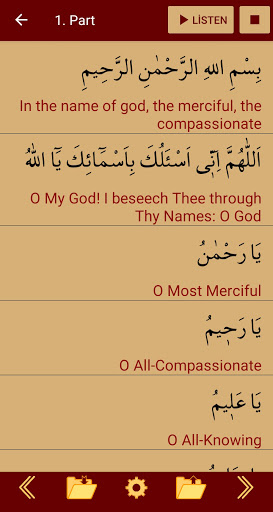 1. Part
LİSTEN
بِسْمِ اللهِ الرَّحْمٰنِ الرَّحٖيمِ
In the name of god, the merciful, the
compassionate
اَللّٰهُمَّ اِنّٖٓى اَسْئَلُكَ بِاَسْمَٓائِكَ يَٓا اَللّٰهُ
O My God! I beseech Thee through
Thy Names: O God
يَا رَحْمٰنُ
O Most Merciful
يَا رَحٖيمُ
O All-Compassionate
يَا عَلٖيمُ
O All-Knowing